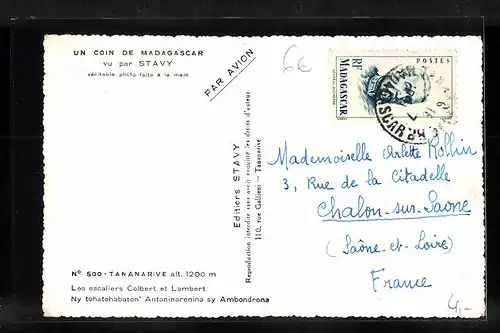 UN COIN DE MADAGASCAR
vu par STAVY
véritable photo faite à la main
PAR AVION
6€
RF
POSTES
MADAGASCAR
Editions STAVY
Reproduction interdite sans avoir acquitté les droits d'auteur
110, rue Gallieni — Tananarive
Mademoiselle Arlette Rollin
3, Rue de la Citadelle
Chalon-sur-Saone
(Saône-et-Loire)
France
N° 500 - TANANARIVE alt. 1200 m
Les escaliers Colbert et Lambert
Ny tohatohabaton' Antaninarenina sy Ambondrona
4,-